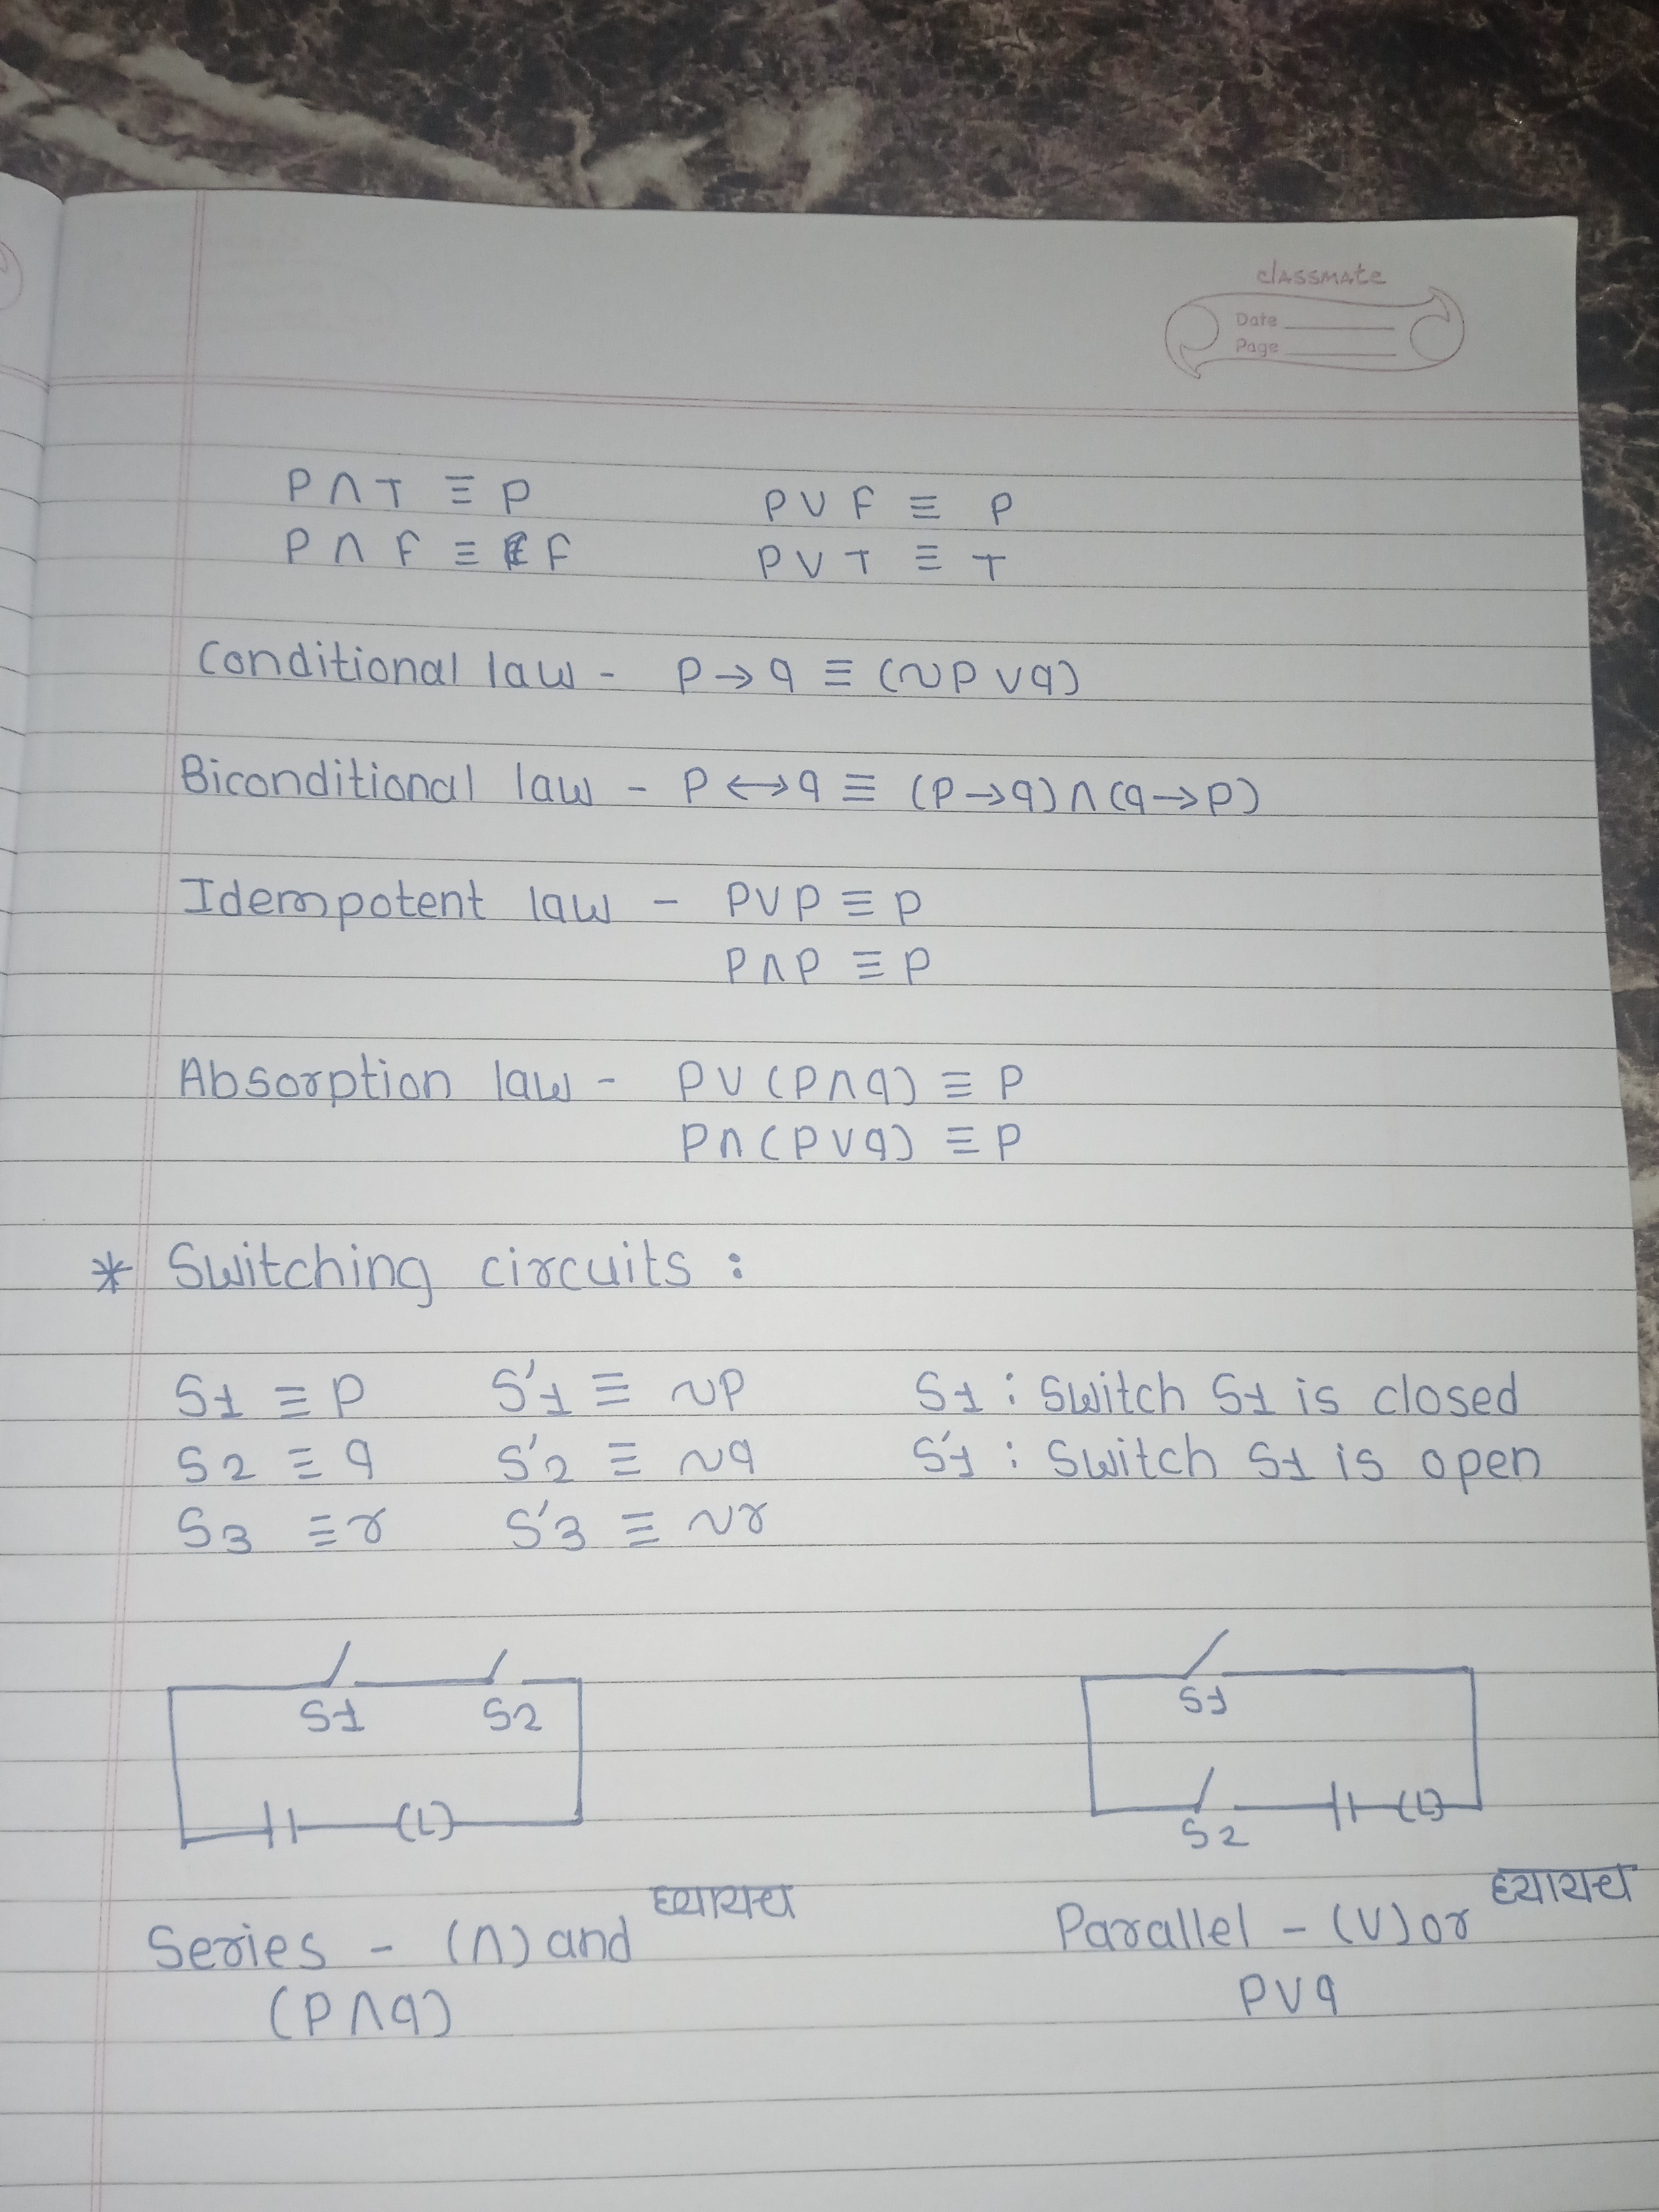 classmate
Date
Page
P ∧ T ≡ P    P ∨ F ≡ P
P ∧ F ≡ F    P ∨ T ≡ T
Conditional law - P → q ≡ (~P ∨ q)
Biconditional law - P ↔ q ≡ (P → q) ∧ (q → P)
Idempotent law - P ∨ P ≡ P
P ∧ P ≡ P
Absorption law - P ∨ (P ∧ q) ≡ P
P ∧ (P ∨ q) ≡ P
* Switching circuits :
S1 ≡ P    S'1 ≡ ~P    S1 : Switch S1 is closed
S2 ≡ q    S'2 ≡ ~q    S'1 : Switch S1 is open
S3 ≡ r    S'3 ≡ ~r
S1    S2    S1
(L)    S2    (L)
Series - (∧) and घ्यायचा    Parallel - (∨) or घ्यायचा
(P ∧ q)    P ∨ q